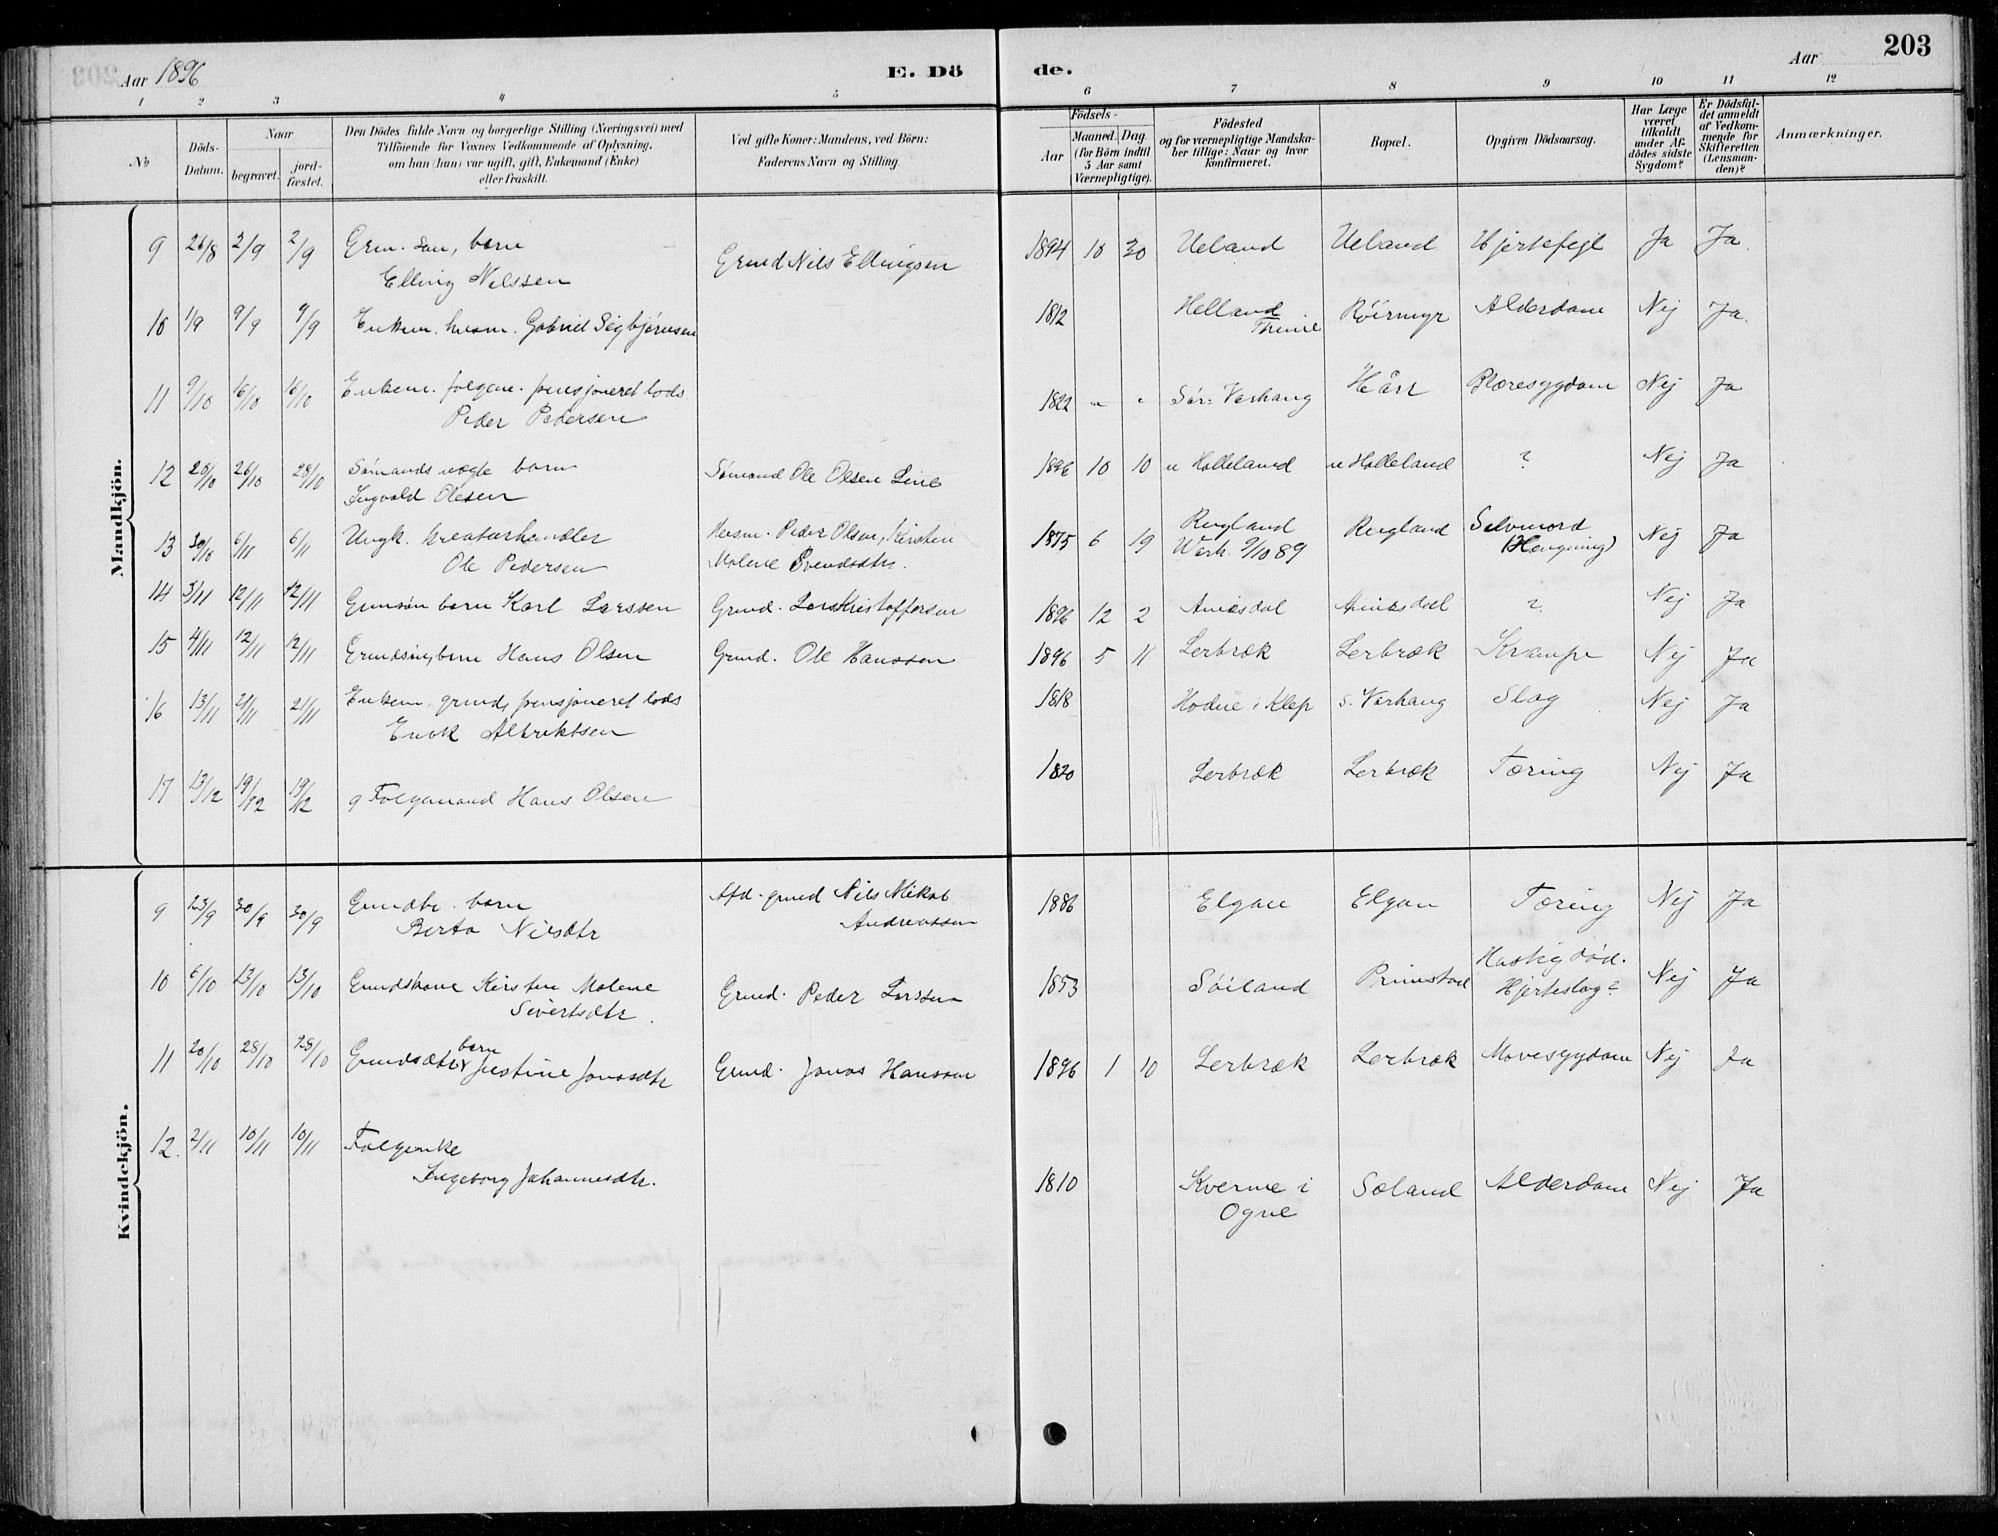 203
Aar 1896
E. Dö
de.
Aar
1 2 3 4 5 6 7 8 9 10 11 12
No
Döds-
Datum.
Naar
begravet.
jord-
fæstet.
Den Dödes fulde Navn og borgerlige Stilling (Næringsvei) med
Tilföiende for Voxnes Vedkommende af Oplysning,
om han (hun) var ugift, gift, Enkemand (Enke)
eller fraskilt.
Ved gifte Koner: Mandens, ved Börn:
Faderens Navn og Stilling.
Födsels-
Aar
Maaned.
Dag.
(for Börn indtil
5 Aar samt
Værnepligtige).
Födested
og for værnepligtige Mandska-
ber tillige: Naar og hvor
konfirmeret.
Bopæl.
Opgiven Dödsaarsag.
Har Læge
været
tilkaldt
under Af-
dödes sidste
Sygdom?
Er Dödsfal-
det anmeldt
af Vedkom-
mende for
Skifteretten
(Lensman-
den)?
Anmærkninger.
Mandkjön.
9 26/8 2/9 2/9 barn Grmd Nils Ellingsen 1894 10 30 Ueland Ueland Hjertefejl Ja Ja.
Elling Nilssen
10 1/9 9/9 9/9 Enkem. husm. Gabriel Sigbjörnsen 1812 Helland Röirmyr Alderdom Nej Ja.
Thime
11 9/10 16/10 16/10 Enkem. folgem. pensjoneret lods 1822 " " Sör. Varhaug Hårr Blæresygdom Nej Ja
Peder Pedersen
12 20/10 26/10 28/10 Sømands uægte barn Sømand Ole Olsen 1896 10 10 n Holleland n Holleland ? Nej Ja
Ingvald Olesen
13 30/10 6/11 6/11 Ungk. kreaturhandler Husm. Peder Olsen, Kirsten 1875 6 19 Rugland Rugland Selvmord Nej Ja
Ole Pedersen Malene Svendsdtr. Varh. 9/10 89 (Hængning)
14 3/11 12/11 12/11 barn Karl Larssen Grmd. Lars Kristoffersen 1896 12 2 Aniksdal Aniksdal ? Nej Ja
15 4/11 12/11 12/11 barn Hans Olsen Grmd. Ole Hanssen 1896 5 11 Lerbræk Lerbræk Krampe Nej Ja
16 13/11 21/11 21/11 Enkem. grmd, pensjoneret lods 1818 Hodne i Klep s. Varhaug Slag Nej Ja
Enok Albriktsen
17 13/12 19/12 19/12 g Folgemand Hans Olsen 1820 Lerbræk Lerbræk Tæring Nej Ja
Kvindekjön.
9 23/9 30/9 30/9 barn Afd. grmd Nils Mikal 1886 Elgan Elgan Tæring Nej Ja
Berta Nilsdtr Andreassen
10 6/10 13/10 13/10 Grmdskone Kirsten Malene Grmd. Peder Larssen 1853 Söiland Primstad Hastig död. Nej Ja
Sivertsdtr. Hjerteslag?
barn
11 20/10 28/10 28/10 Grmdsdtr Justine Jonasdtr Grmd. Jonas Hanssen 1896 1 10 Lerbræk Lerbræk Mavesygdom Nej Ja
12. 2/11 10/11 10/11 Folgenke
Ingeborg Johannesdtr. 1810 Kverme i Sæland Alderdom Nej Ja
Ogne